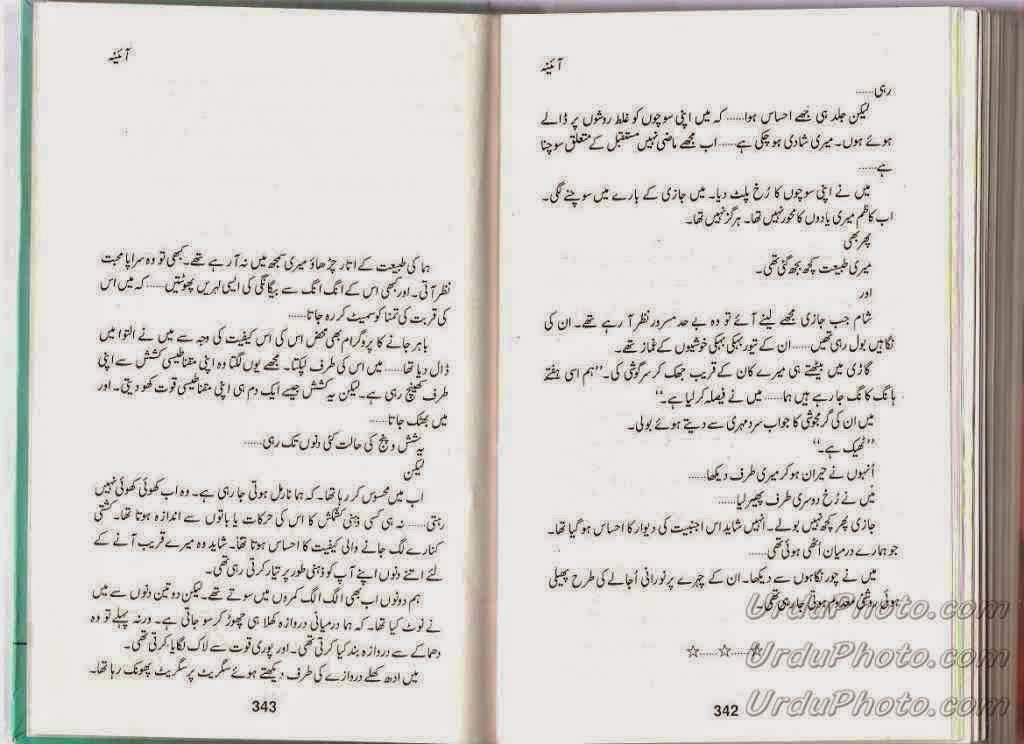 آئینہ
رہی......
لیکن جلد ہی مجھے احساس ہوا...... کہ میں اپنی سوچوں کو غلط روشوں پر ڈالے
ہوئے ہوں۔ میری شادی ہو چکی ہے...... اب مجھے ماضی نہیں مستقبل کے متعلق سوچنا
ہے......
میں نے اپنی سوچوں کا رُخ پلٹ دیا۔ میں جازی کے بارے میں سوچنے لگی۔
اب کاظم میری یادوں کا محور نہیں تھا۔ ہرگز نہیں تھا۔
پھر بھی
میری طبیعت کچھ بجھ گئی تھی۔
اور
شام جب جازی مجھے لینے آئے تو وہ بے حد مسرور نظر آ رہے تھے۔ ان کی
نگاہیں بول رہی تھیں...... ان کے تیور بہکی بہکی خوشیوں کے غماز تھے۔
گاڑی میں بیٹھتے ہی میرے کان کے قریب جھک کر سرگوشی کی۔ ”ہم اسی ہفتے
ہانگ کانگ جا رہے ہیں ہما...... میں نے فیصلہ کر لیا ہے۔“
میں ان کی گرمجوشی کا جواب سرد مہری سے دیتے ہوئے بولی۔
”ٹھیک ہے۔“
اُنہوں نے حیران ہو کر میری طرف دیکھا۔
میں نے رُخ دوسری طرف پھیر لیا......
جازی پھر کچھ نہیں بولے۔ انہیں شاید اس اجنبیت کی دیوار کا احساس ہو گیا تھا۔
جو ہمارے درمیان اُٹھی ہوئی تھی......
میں نے چور نگاہوں سے دیکھا۔ ان کے چہرے پر نورانی اُجالے کی طرح پھیلی
ہوئی روشنی معدوم ہوتی جا رہی تھی۔
☆......☆......☆
342
UrduPhoto.com
UrduPhoto.com
UrduPhoto.com
آئینہ
ہما کی طبیعت کے اتار چڑھاؤ میری سمجھ میں نہ آ رہے تھے۔ کبھی تو وہ سراپا محبت
نظر آتی۔ اور کبھی اس کے انگ انگ سے بیگانگی کی ایسی لہریں پھوٹتیں...... کہ میں اس
کی قربت کی تمنا کو سمیٹ کر رہ جاتا......
باہر جانے کا پروگرام بھی محض اس کی اس کیفیت کی وجہ سے میں نے التوا میں
ڈال دیا تھا...... میں اس کی طرف لپکتا۔ مجھے یوں لگتا وہ اپنی مقناطیسی کشش سے اپنی
طرف کھینچ رہی ہے۔ لیکن یہ کشش جیسے ایک دم ہی اپنی مقناطیسی قوت کھو دیتی۔ اور
میں بھٹک جاتا......
یہ شش و پنج کی حالت کئی دنوں تک رہی......
لیکن
اب میں محسوس کر رہا تھا۔ کہ ہما نارمل ہوتی جا رہی ہے۔ وہ اب کھوئی کھوئی نہیں
رہتی...... نہ ہی کسی ذہنی کشمکش کا اس کی حرکات یا باتوں سے اندازہ ہوتا تھا۔ کشتی
کنارے لگ جانے والی کیفیت کا احساس ہوتا تھا۔ شاید وہ میرے قریب آنے کے
لئے اتنے دنوں اپنے آپ کو ذہنی طور پر تیار کرتی رہی تھی۔
ہم دونوں اب بھی الگ الگ کمروں میں سوتے تھے۔ لیکن دو تین دنوں سے میں
نے نوٹ کیا تھا۔ کہ ہما درمیانی دروازہ کھلا ہی چھوڑ کر سو جاتی ہے۔ ورنہ پہلے تو وہ
دھماکے سے دروازہ بند کیا کرتی تھی۔ اور پوری قوت سے لاک لگایا کرتی تھی۔
میں ادھ کھلے دروازے کی طرف دیکھتے ہوئے سگریٹ پر سگریٹ پھونک رہا تھا۔
343